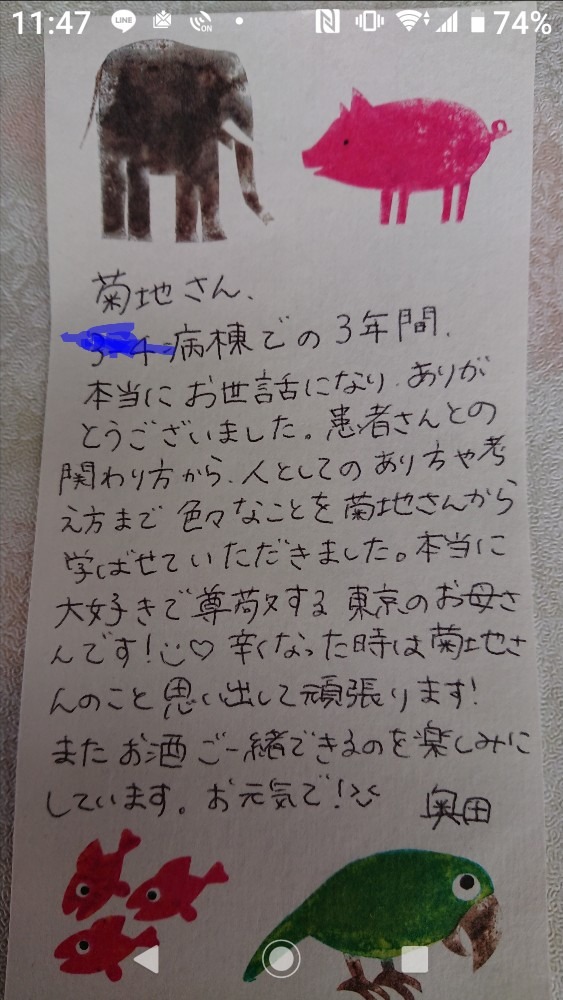 11:47
LINE
ON
74%
菊地さん、
3-4病棟での3年間、
本当にお世話になり、ありが
とうございました。患者さんとの
関わり方から、人としてのあり方や考
え方まで色々なことを菊地さんから
学ばせていただきました。本当に
大好きで尊敬する東京のお母さ
んです!♡辛くなった時は菊地さ
んのこと思い出して頑張ります!
またお酒ご一緒できるのを楽しみに
しています。お元気で!
奥田